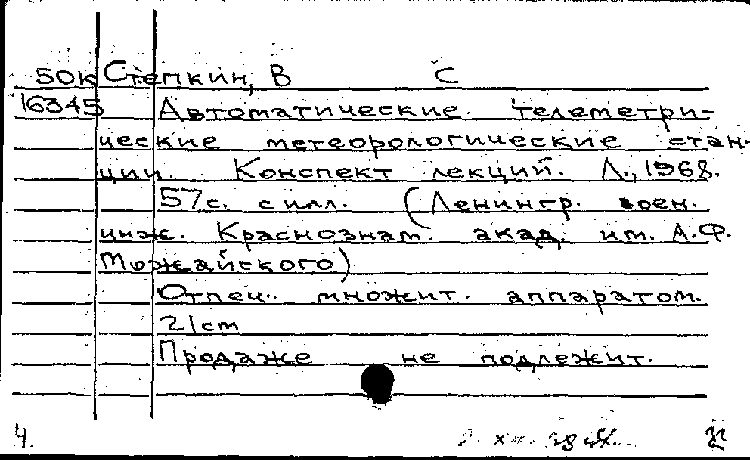 50К Степкин, В С
16345 Автоматические телеметри-
ческие метеорологические стан-
ции. Конспект лекций. Л., 1968.
57с. с илл. (Ленингр. воен.
инж. Краснознам. акад. им. А.Ф.
Можайского)
Отпеч. множит. аппаратом.
21 cm
Продаже не подлежит.
4.